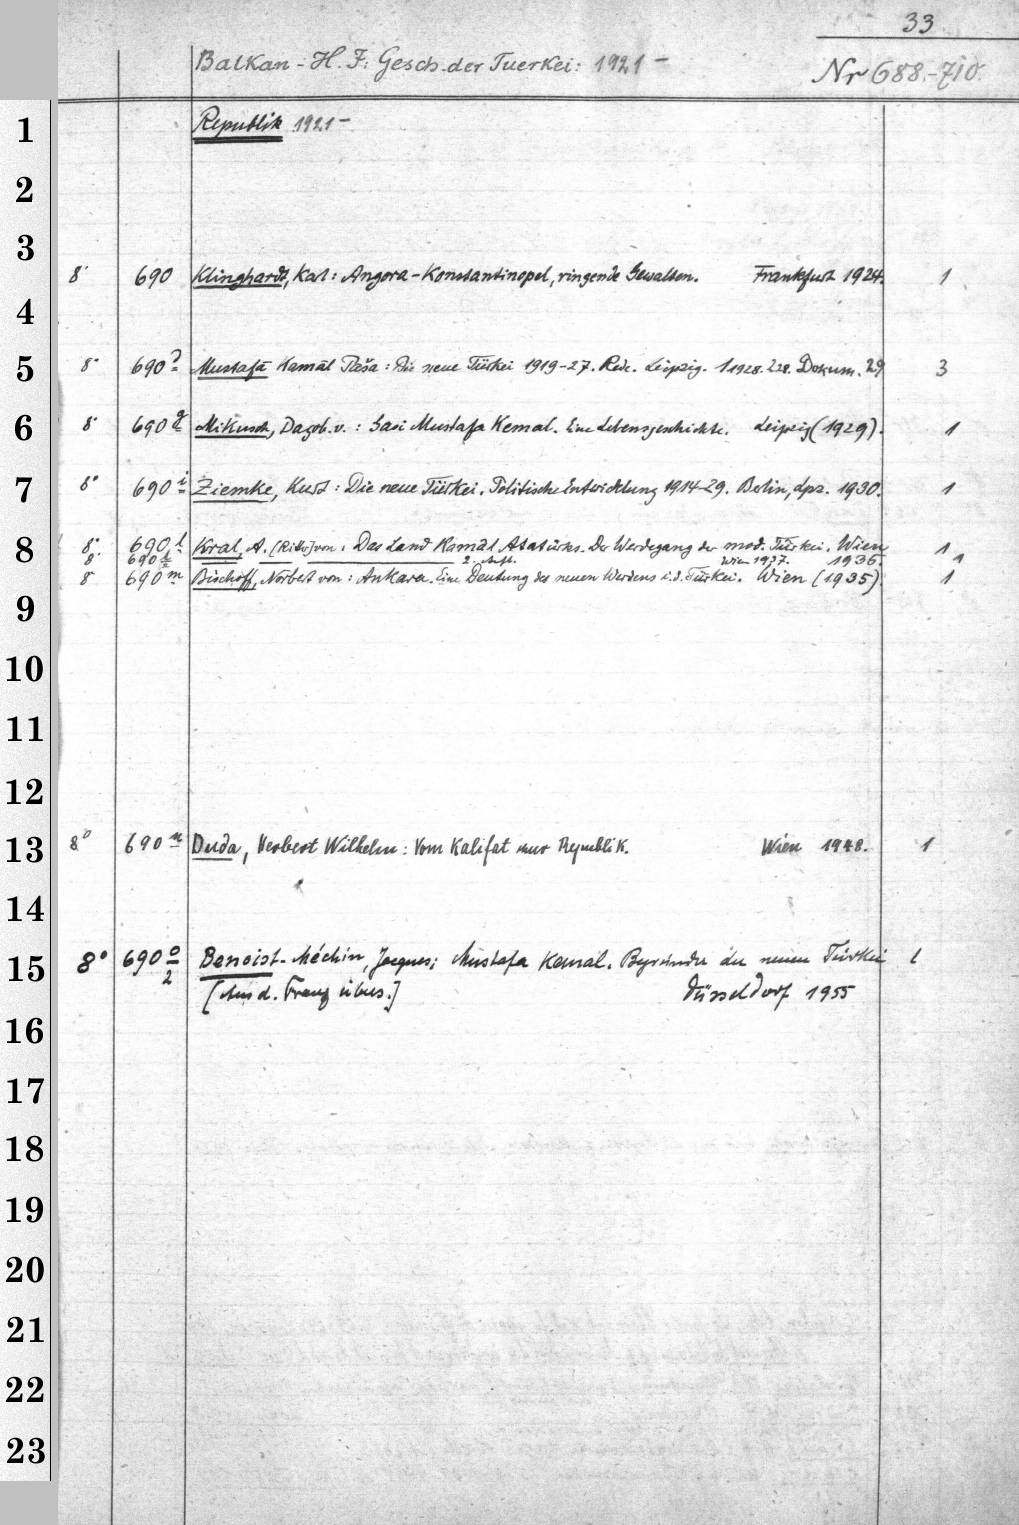 33
Balkan - H. F: Gesch. der Tuerkei: 1921 -
Nr 688.-710.
1 Republik 1921 -
2
3
8° 690 Klinghardt, Karl: Angora - Konstantinopel, ringende Gewalten. Frankfurt 1924. 1
4
5 8° 690 Mustafā Kamāl Paša: Die neue Türkei 1919-27. Rede. Leipzig. 1 1928. 2 28. Dokum. 29 3
6 8° 690 g Mikusch, Dagob. v.: Gasi Mustafa Kemal. Eine Lebensgeschichte. Leipzig (1929). 1
7 8° 690 i Ziemke, Kurt: Die neue Türkei. Politische Entwicklung 1914-29. Berlin, Lpz. 1930. 1
8 8° 690 l Kral, A. (Ritter) von: Das Land Kamāl Atatürks. Der Werdegang der mod. Türkei. Wien 1935. 1
8° 690 2. Aufl. Wien 1937. 1
8° 690 m Bischoff, Norbert von: Ankara. Eine Deutung des neuen Werdens i. d. Türkei. Wien (1935) 1
9
10
11
12
13 8° 690 n Duda, Herbert Wilhelm: Vom Kalifat zur Republik. Wien 1948. 1
14
15 8° 690 o/2 Benoist-Méchin, Jacques; Mustafa Kemal. Begründer der neuen Türkei 1
[Aus d. Franz übers.] Düsseldorf 1955
16
17
18
19
20
21
22
23